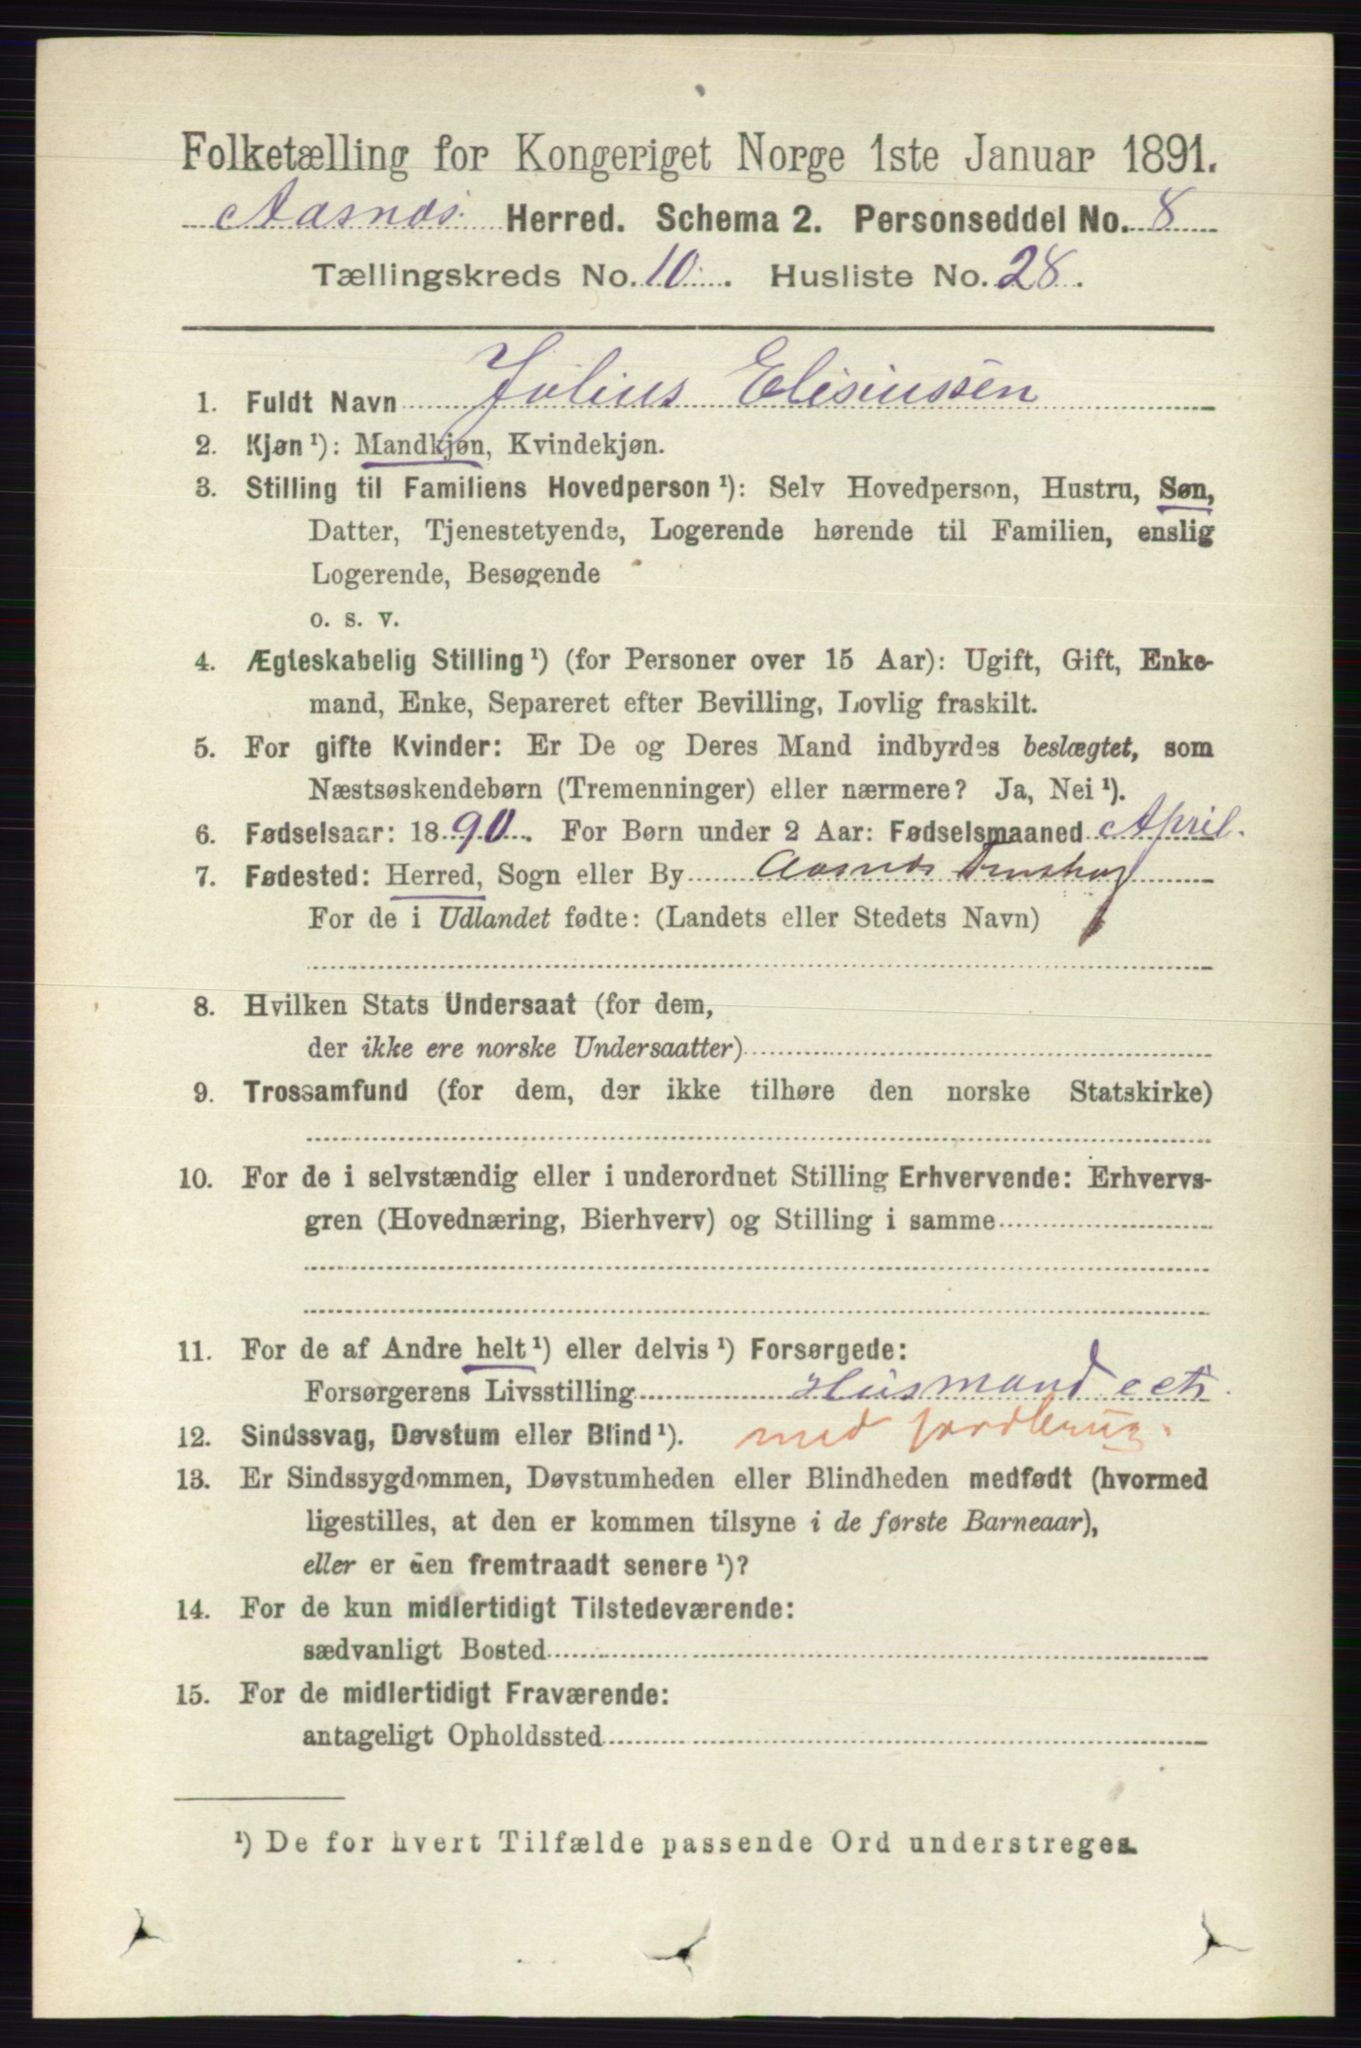 Folketælling for Kongeriget Norge 1ste Januar 1891.
Aasnæs. Herred. Schema 2. Personseddel No. 8
Tællingskreds No. 10. Husliste No. 28.
1. Fuldt Navn Julius Elisiussen
2. Kjøn¹): Mandkjøn, Kvindekjøn.
3. Stilling til Familiens Hovedperson¹): Selv Hovedperson, Hustru, Søn,
Datter, Tjenestetyende, Logerende hørende til Familien, enslig
Logerende, Besøgende
o. s. v.
4. Ægteskabelig Stilling¹) (for Personer over 15 Aar): Ugift, Gift, Enke-
mand, Enke, Separeret efter Bevilling, Lovlig fraskilt.
5. For gifte Kvinder: Er De og Deres Mand indbyrdes beslægtet, som
Næstsøskendebørn (Tremenninger) eller nærmere? Ja, Nei¹).
6. Fødselsaar: 1890. For Børn under 2 Aar: Fødselsmaaned April.
7. Fødested: Herred, Sogn eller By Aasnæs
For de i Udlandet fødte: (Landets eller Stedets Navn)
8. Hvilken Stats Undersaat (for dem,
der ikke ere norske Undersaatter)
9. Trossamfund (for dem, der ikke tilhøre den norske Statskirke)
10. For de i selvstændig eller i underordnet Stilling Erhvervende: Erhvervs-
gren (Hovednæring, Bierhverv) og Stilling i samme
11. For de af Andre helt¹) eller delvis¹) Forsørgede:
Forsørgerens Livsstilling Husmand
med jordbrug.
12. Sindssvag, Døvstum eller Blind¹).
13. Er Sindssygdommen, Døvstumheden eller Blindheden medfødt (hvormed
ligestilles, at den er kommen tilsyne i de første Barneaar),
eller er den fremtraadt senere¹)?
14. For de kun midlertidigt Tilstedeværende:
sædvanligt Bosted
15. For de midlertidigt Fraværende:
antageligt Opholdssted
¹) De for hvert Tilfælde passende Ord understreges.